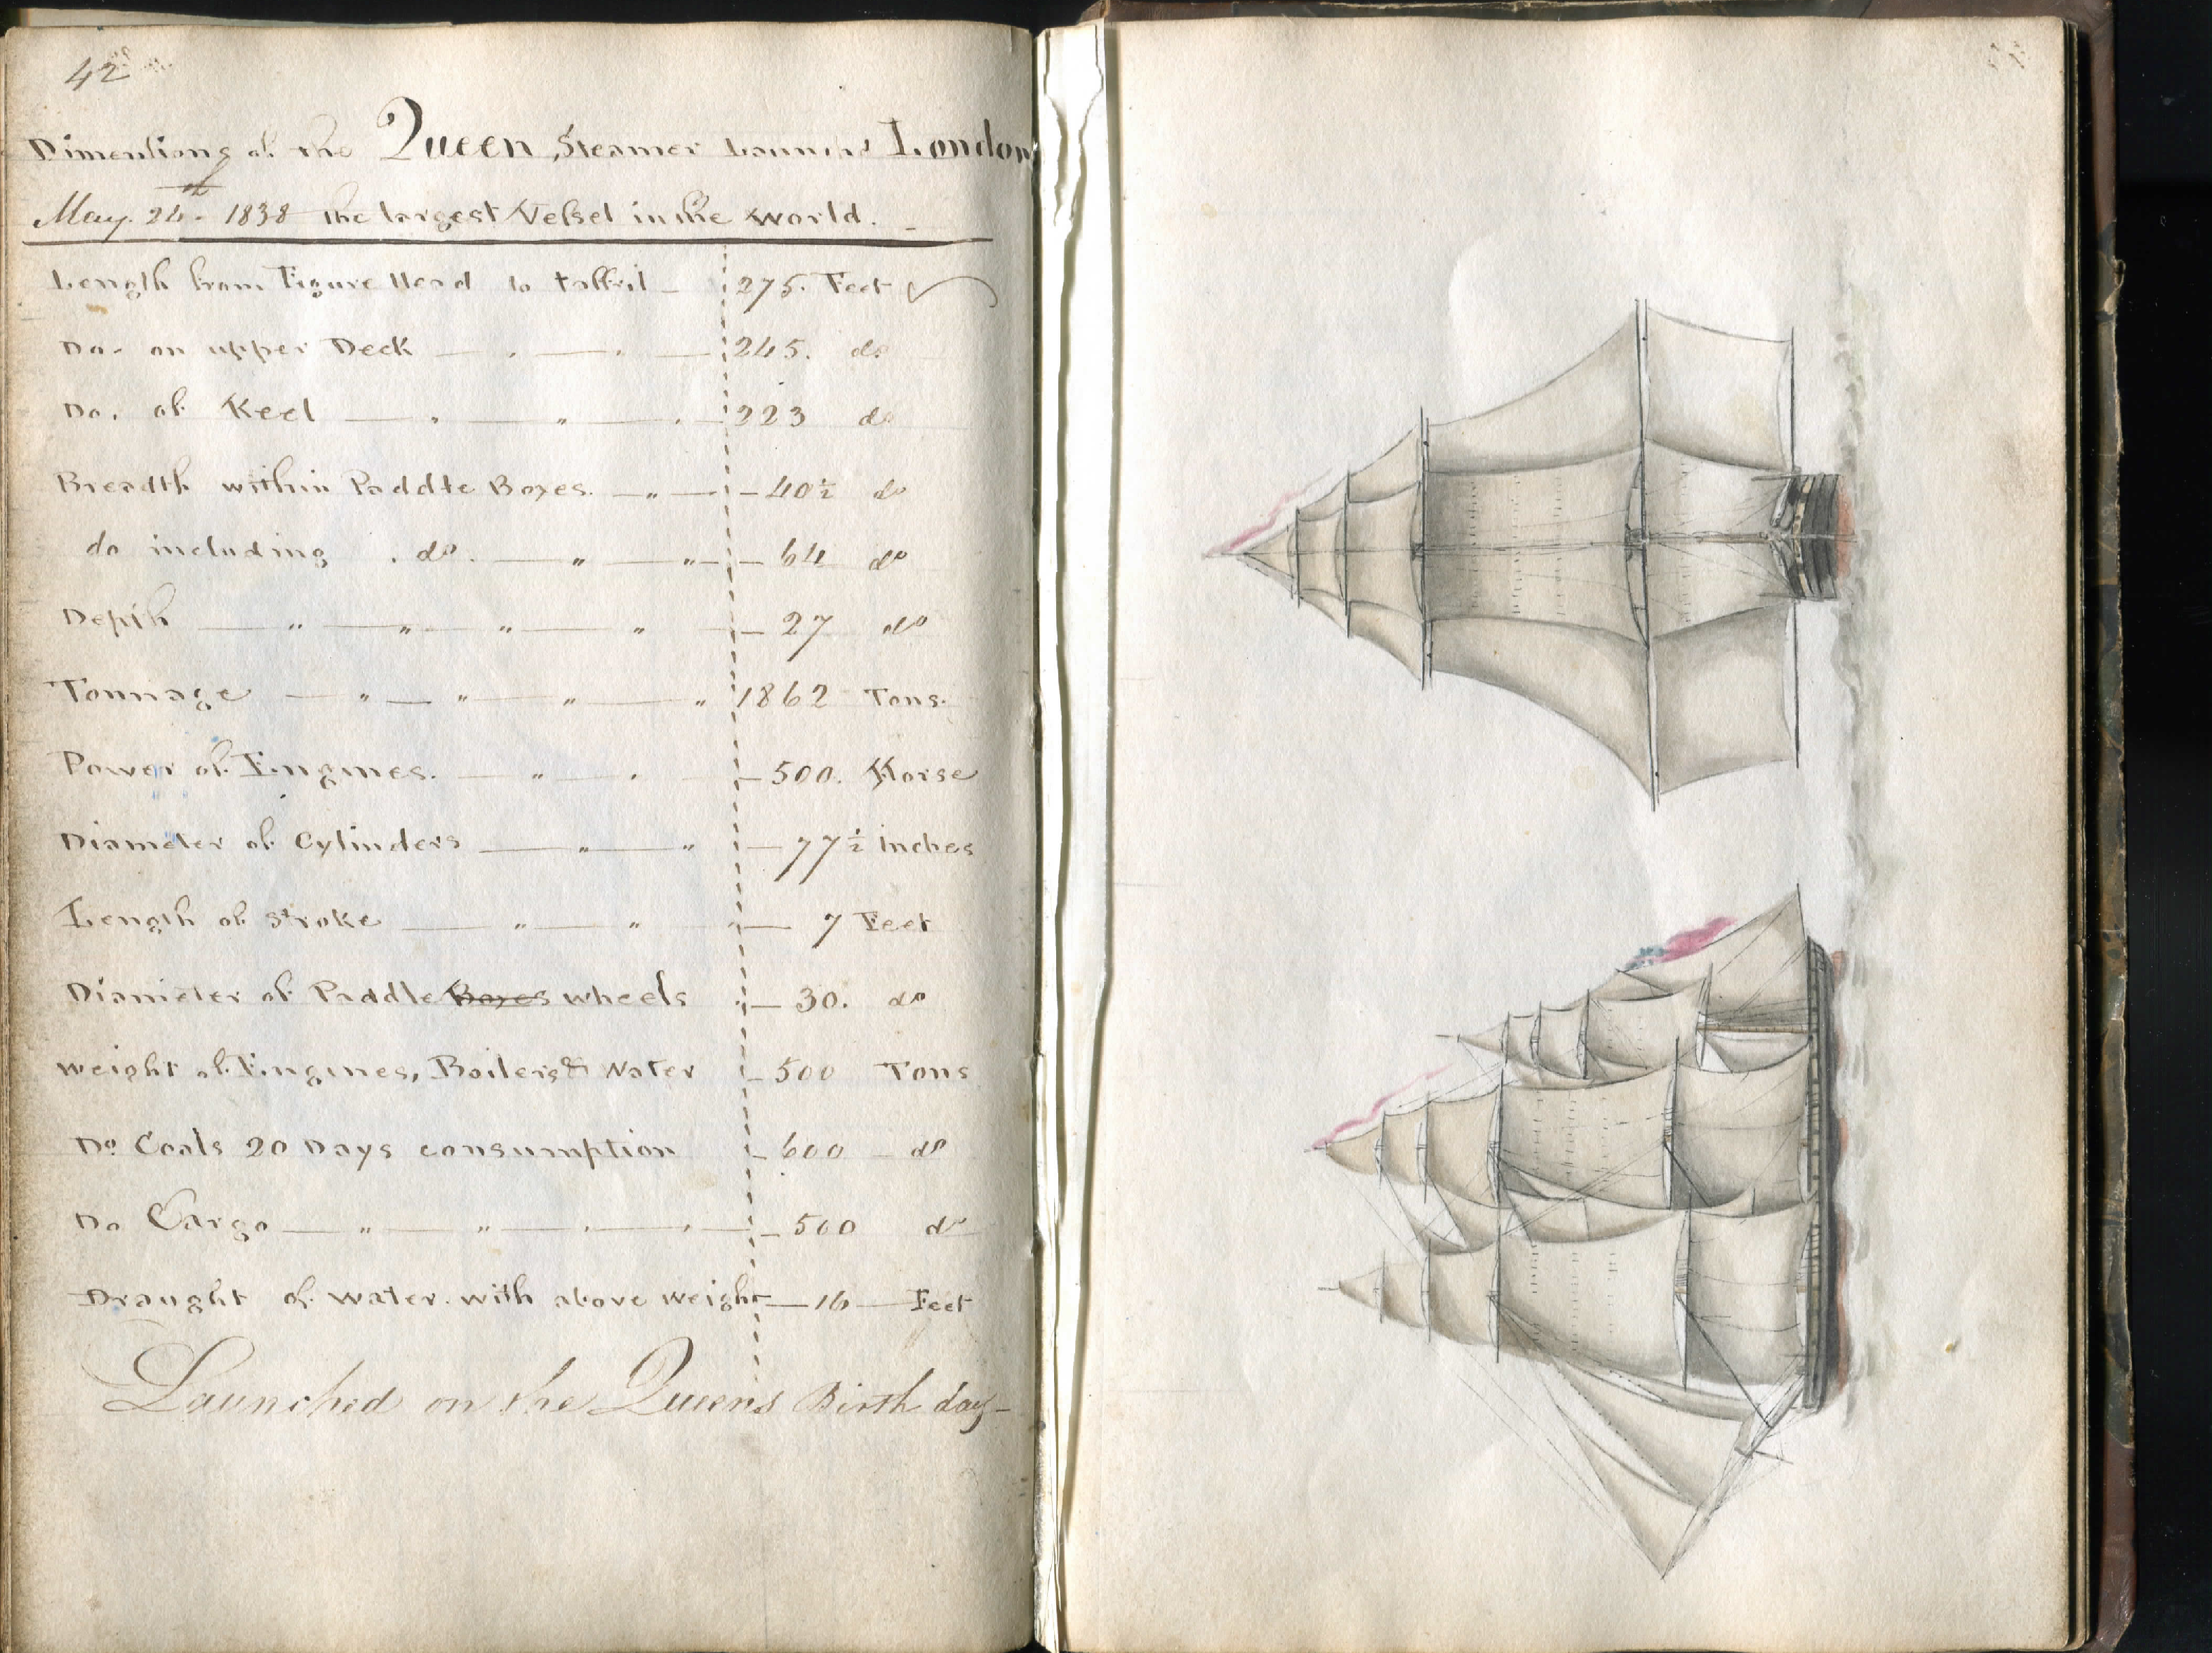 42
Dimentions of the Queen Steamer Launchd London
May. 24th 1838 the largest Vessel in the World.
Length from Figure Head to taffril 275. Feet
Do. on upper Deck 245. do
Do. of Keel 223 do
Breadth within Paddle Boxes. 40½ do
do including do. 64 do
Depth 27 do
Tonnage 1862 Tons.
Power of Engines. 500. Horse
Diameter of Cylinders 77½ inches
Length of Stroke 7 Feet
Diameter of Paddle Boxes wheels 30. do
weight of Engines, Boilers & Water 500 Tons
Do Coals 20 Days consumption 600 do
Do Cargo 500 do
Draught of water. with above weight 16 Feet
Launched on the Queens Birth day